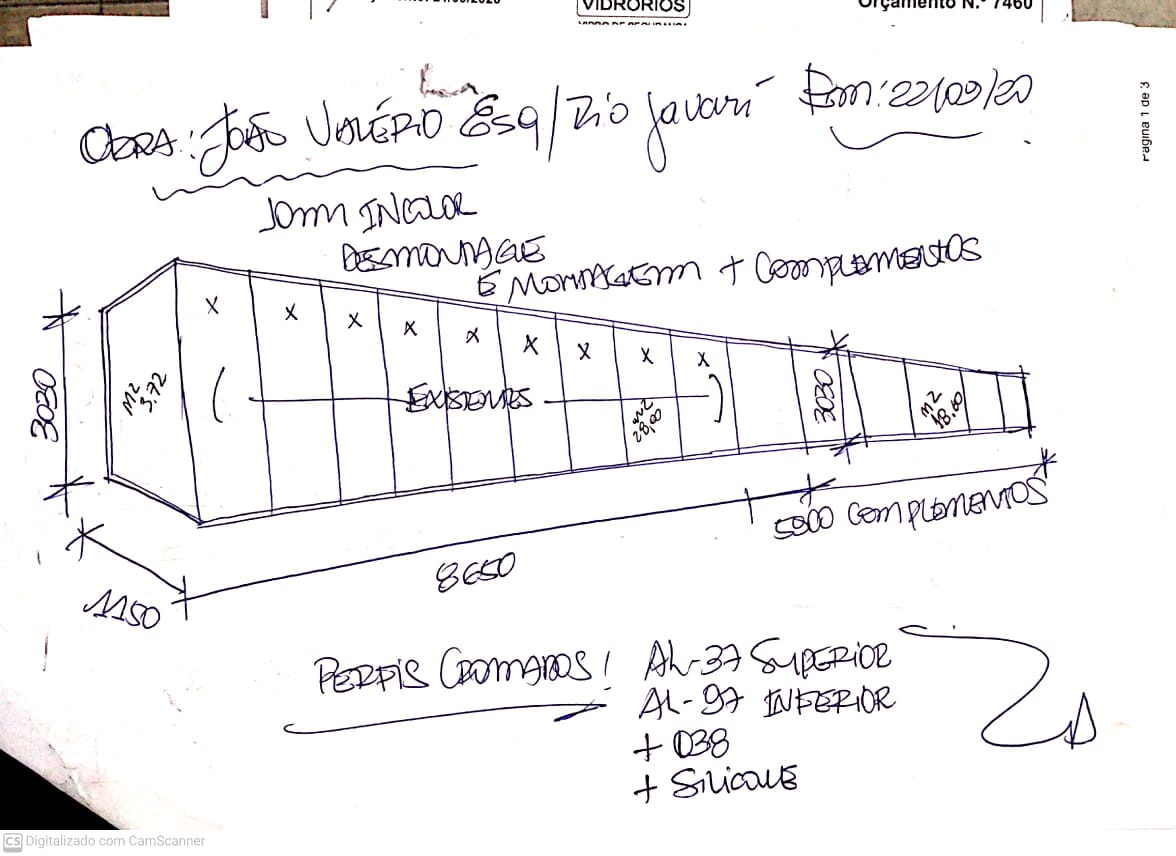 VIDRORIOS
Orçamento N.º 7460
Página 1 de 3
OBRA: JOÃO VALÉRIO Esq/ Rio Javari Em: 22/09/20
10mm INCOLOR
DESMONTAGE
E MONTAGEM + COMPLEMENTOS
X X X X X X X X X
3030
m2 3,72
( EXISTENTES )
m2 28,00
3030
m2 18,00
5900 COMPLEMENTOS
8650
1150
PERFIS CROMADOS! AL-37 SUPERIOR
AL-97 INFERIOR
+ 038
+ SILICONE
CS Digitalizado com CamScanner